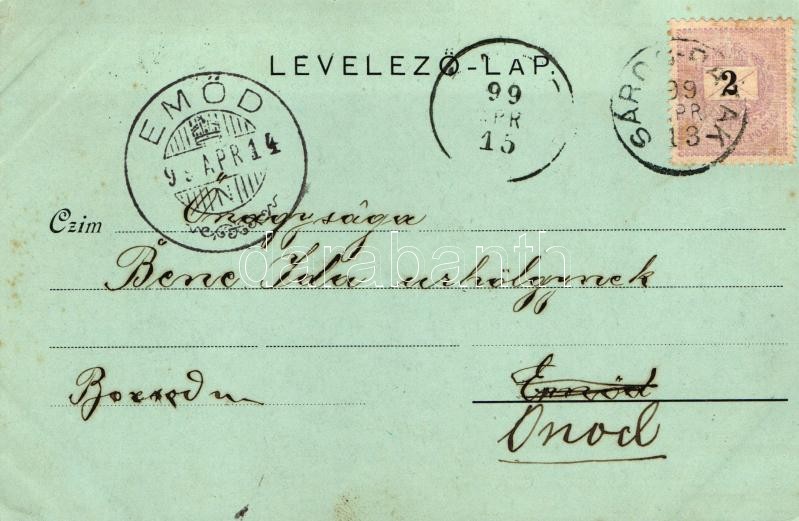 LEVELEZŐ-LAP.
EMŐD
99 APR 14
N
99
APR
15
SÁROS-PATAK
99
APR
13
2
Czim Őnagysága
Bene Ida urhölgynek
Borsod m
Emőd
Onod
darabanth